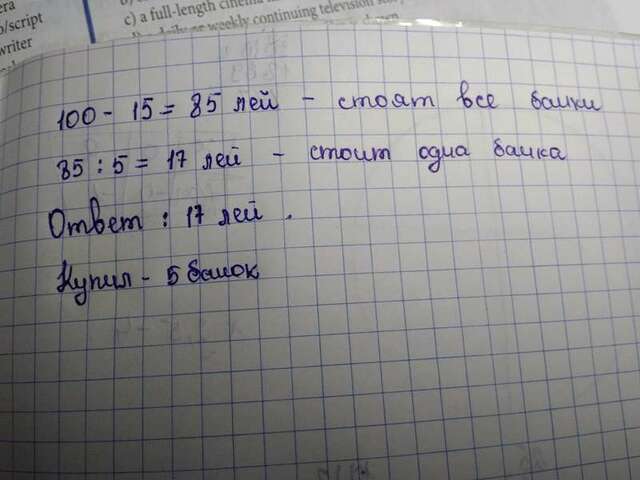 writer
c) a full-length
weekly continuing television
100 - 15 = 85 лей - стоят все банки
85 : 5 = 17 лей - стоит одна банка
Ответ : 17 лей .
Купил - 5 банок